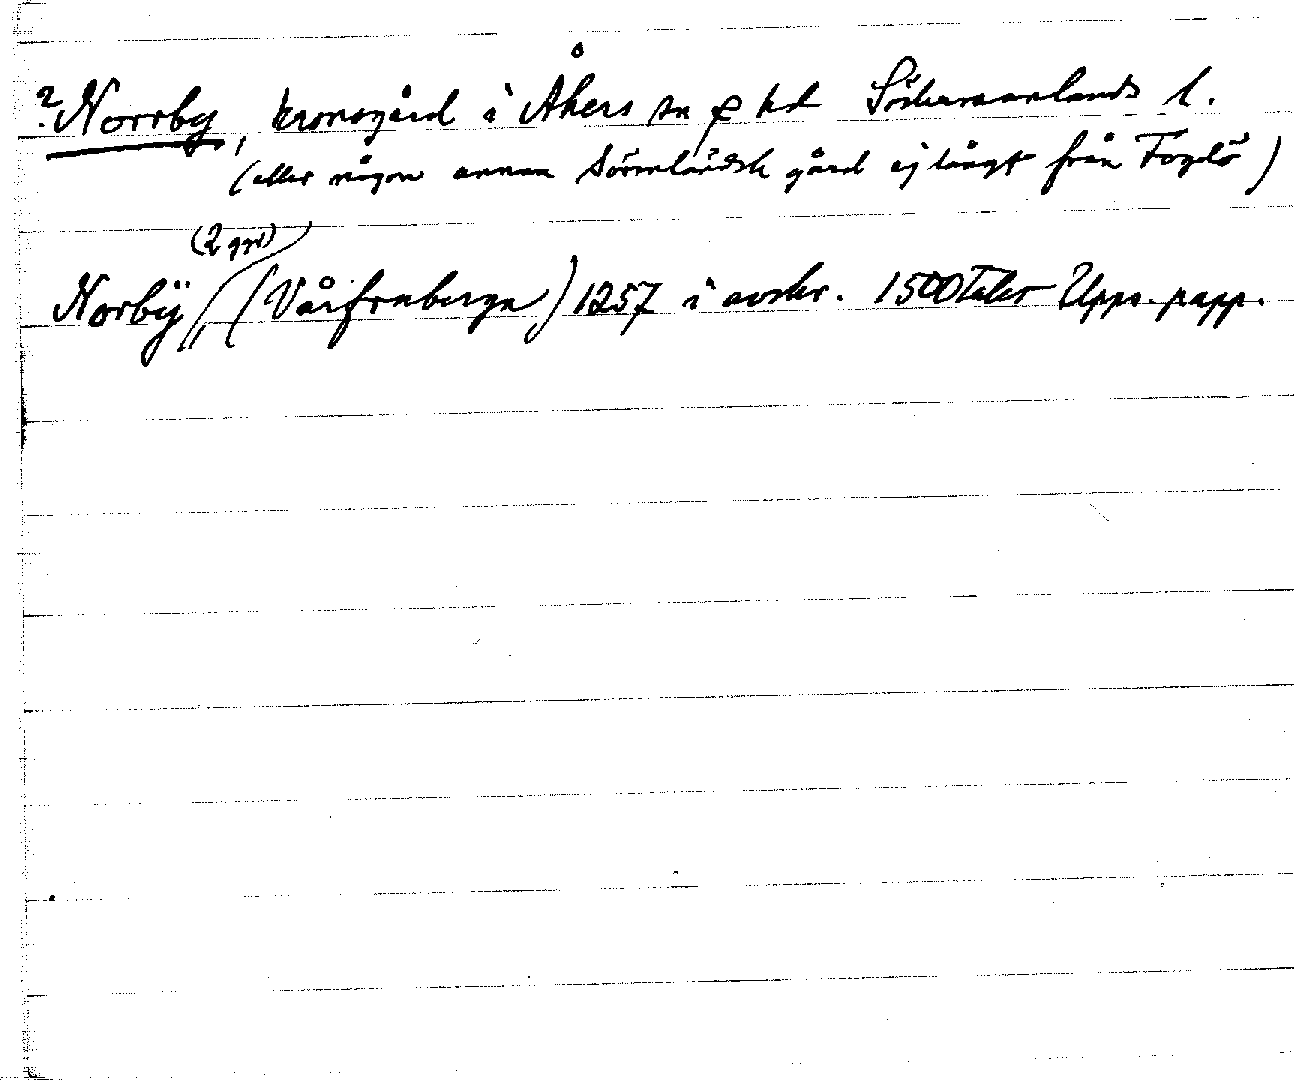 ? Norrby, kronogård i Åkers sn o hd Södermanlands l.
(eller någon annan Sörmländsk gård ej långt från Fogdö)
(2 ggr)
Norbÿ (Vårfruberga) 1257 i avskr. 1500talet Upps. papp.